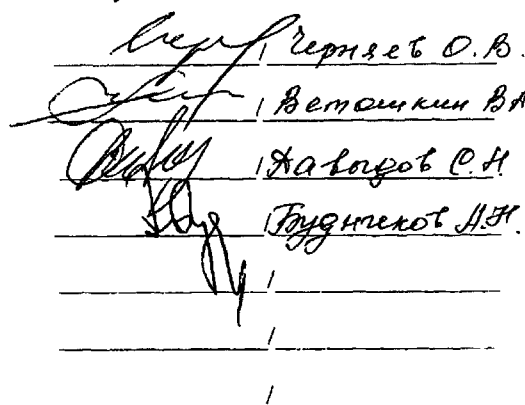 / Черняев О.В.
/ Ветошкин ВА
/ Давыдов С.Н
/ Будничков А.Н.
/
/
/